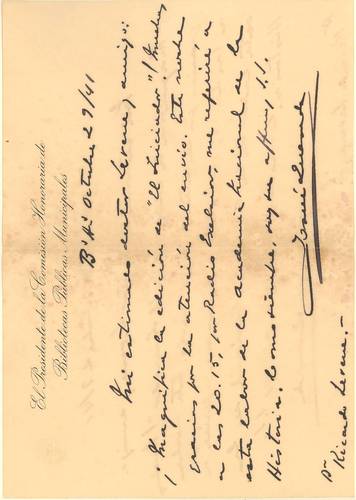 El Presidente de la Comisión Honoraria de
Bibliotecas Públicas Municipales
Bs As Octubre 29/41
Mi estimado doctor Levene, amigo:
¡Magnífica la edición de "El Iniciador"!
gracias por la atención del envío. Esta noche
a las 20.15, por Radio Excelsior, me referiré a
esta labor de la Academia Nacional de la
Historia. Cordialmente, suyo affmo. S.S.
Dr Ricardo Levene.-